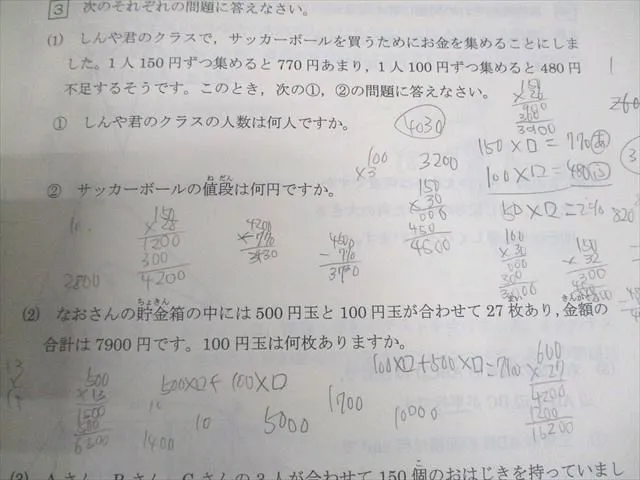 3 次のそれぞれの問題に答えなさい。
(1) しんや君のクラスで，サッカーボールを買うためにお金を集めることにしま
した。1人150円ずつ集めると770円あまり，1人100円ずつ集めると480円
不足するそうです。このとき，次の①，②の問題に答えなさい。
① しんや君のクラスの人数は何人ですか。
4030
150×口=770あ
100
×3
3200
100×口=480ふ
② サッカーボールの値段は何円ですか。
ねだん
150
×30
000
450
4500
150
×28
1200
300
4200
4200
-770
3430
4500
-770
3730
100
×30
000
300
2800
(2) なおさんの貯金箱の中には500円玉と100円玉が合わせて27枚あり，金額の
ちょきん
きんがく
合計は7900円です。100円玉は何枚ありますか。
100×口+500×口=7900
600
×27
4200
1200
16200
500
×13
1500
500
6500
500×口+100×口
10
1400
5000
1700
10000
(3) Aさん，Bさん，Cさんの3人が合わせて150個のおはじきを持っていまし